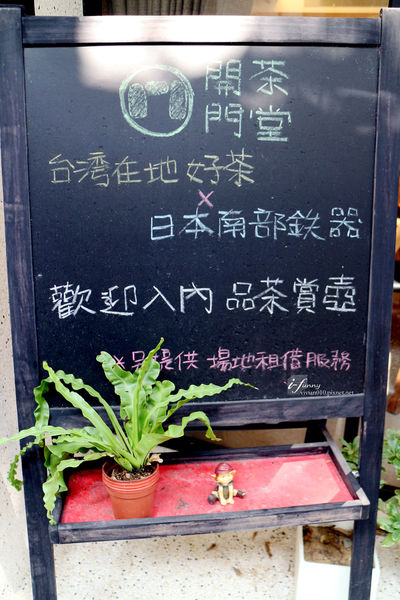 開門
茶堂
台湾在地 好茶
×
日本南部鉄器
歡迎入內 品茶賞壺
×另提供 場地租借服務
i-funny
vivian010.pixnet.net